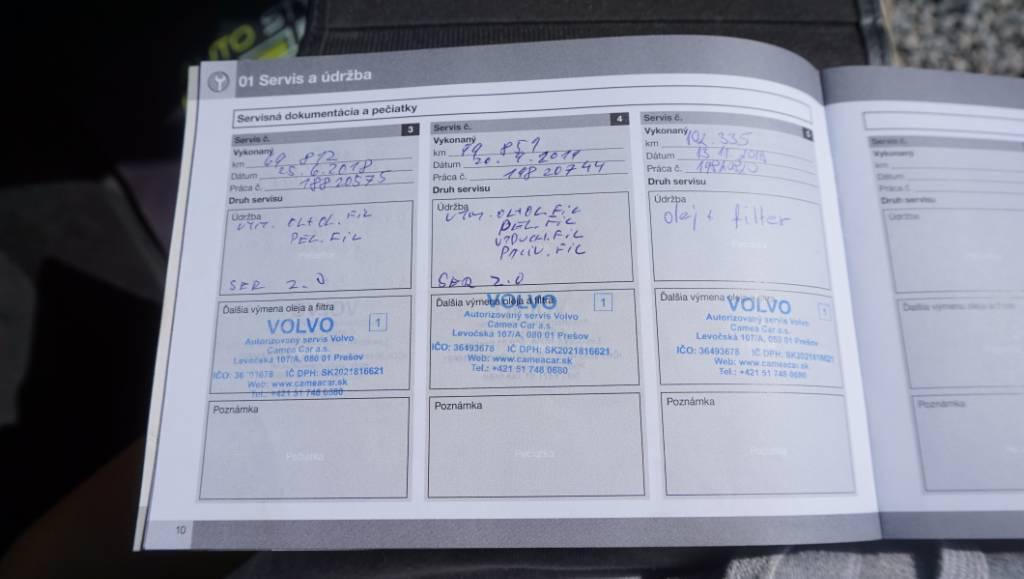 01 Servis a údržba
Servisná dokumentácia a pečiatky
Servis č. 3
Vykonaný
km 69 812
Dátum 25.6.2018
Práca č. 18820575
Druh servisu
Údržba
VYM. OL+OL. FIL
PEL. FIL
SER 2.0
Ďalšia výmena oleja a filtra
VOLVO 1
Autorizovaný servis Volvo
Camea Car a.s.
Levočská 107/A, 080 01 Prešov
IČO: 36493678 IČ DPH: SK2021816621
Web: www.cameacar.sk
Tel.: +421 51 748 0680
Poznámka
Pečiatka
Servis č. 4
Vykonaný
km 99 851
Dátum
Práca č. 19820744
Druh servisu
Údržba
VYM. OL+OL. FIL
PEL. FIL
VZDUCH. FIL
PALIV. FIL
SER 2.0
Ďalšia výmena oleja a filtra
VOLVO 1
Autorizovaný servis Volvo
Camea Car a.s.
Levočská 107/A, 080 01 Prešov
IČO: 36493678 IČ DPH: SK2021816621
Web: www.cameacar.sk
Tel.: +421 51 748 0680
Poznámka
Pečiatka
Servis č. 5
Vykonaný
km 102 335
Dátum
Práca č.
Druh servisu
Údržba
olej + filter
Ďalšia výmena oleja
VOLVO 1
Autorizovaný servis Volvo
Camea Car a.s.
Levočská 107/A, 080 01 Prešov
IČO: 36493678 IČ DPH: SK2021816621
Web: www.cameacar.sk
Tel.: +421 51 748 0680
Poznámka
10
Servis č.
Vykonaný
km
Dátum
Práca č.
Druh servisu
Údržba
Ďalšia výmena oleja
Poznámka